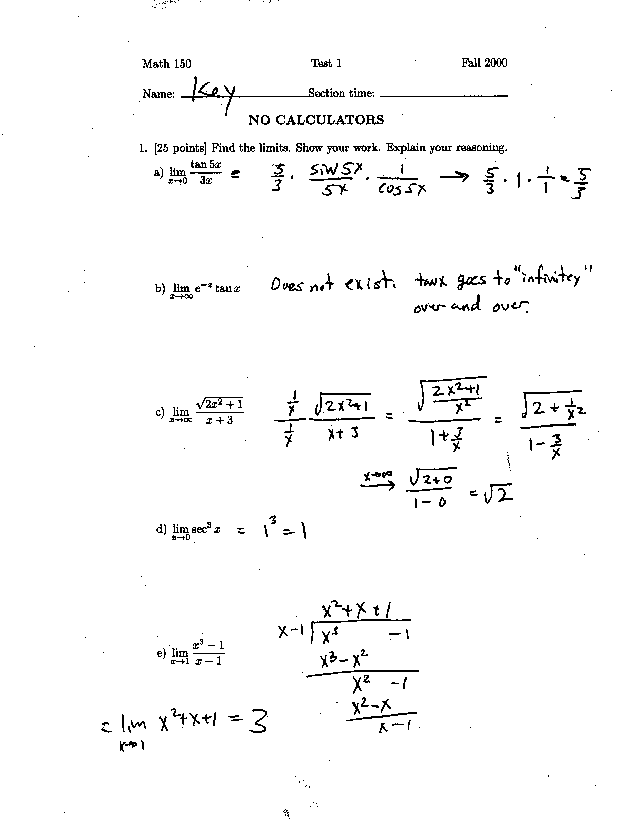 Math 150 Test 1 Fall 2000
Name: Key Section time:
NO CALCULATORS
1. [25 points] Find the limits. Show your work. Explain your reasoning.
a) lim x→0 tan 5x / 3x = 5/3 · sin 5x / 5x · 1 / cos 5x → 5/3 · 1 · 1/1 = 5/3
b) lim x→∞ e^−x tan x Does not exist. tanx goes to "infinitey"
over and over.
c) lim x→∞ √(2x² + 1) / (x + 3) (1/x √(2x²+1)) / (1/x (x+3)) = √((2x²+1)/x²) / (1 + 3/x) = √(2 + 1/x²) / (1 − 3/x)
x→∞ → √(2+0) / (1 − 0) = √2
d) lim x→0 sec³ x = 1³ = 1
x² + x + 1
e) lim x→1 (x³ − 1) / (x − 1) x−1 √ x³ −1
x³ − x²
x² −1
x² − x
x − 1
= lim x→1 x² + x + 1 = 3